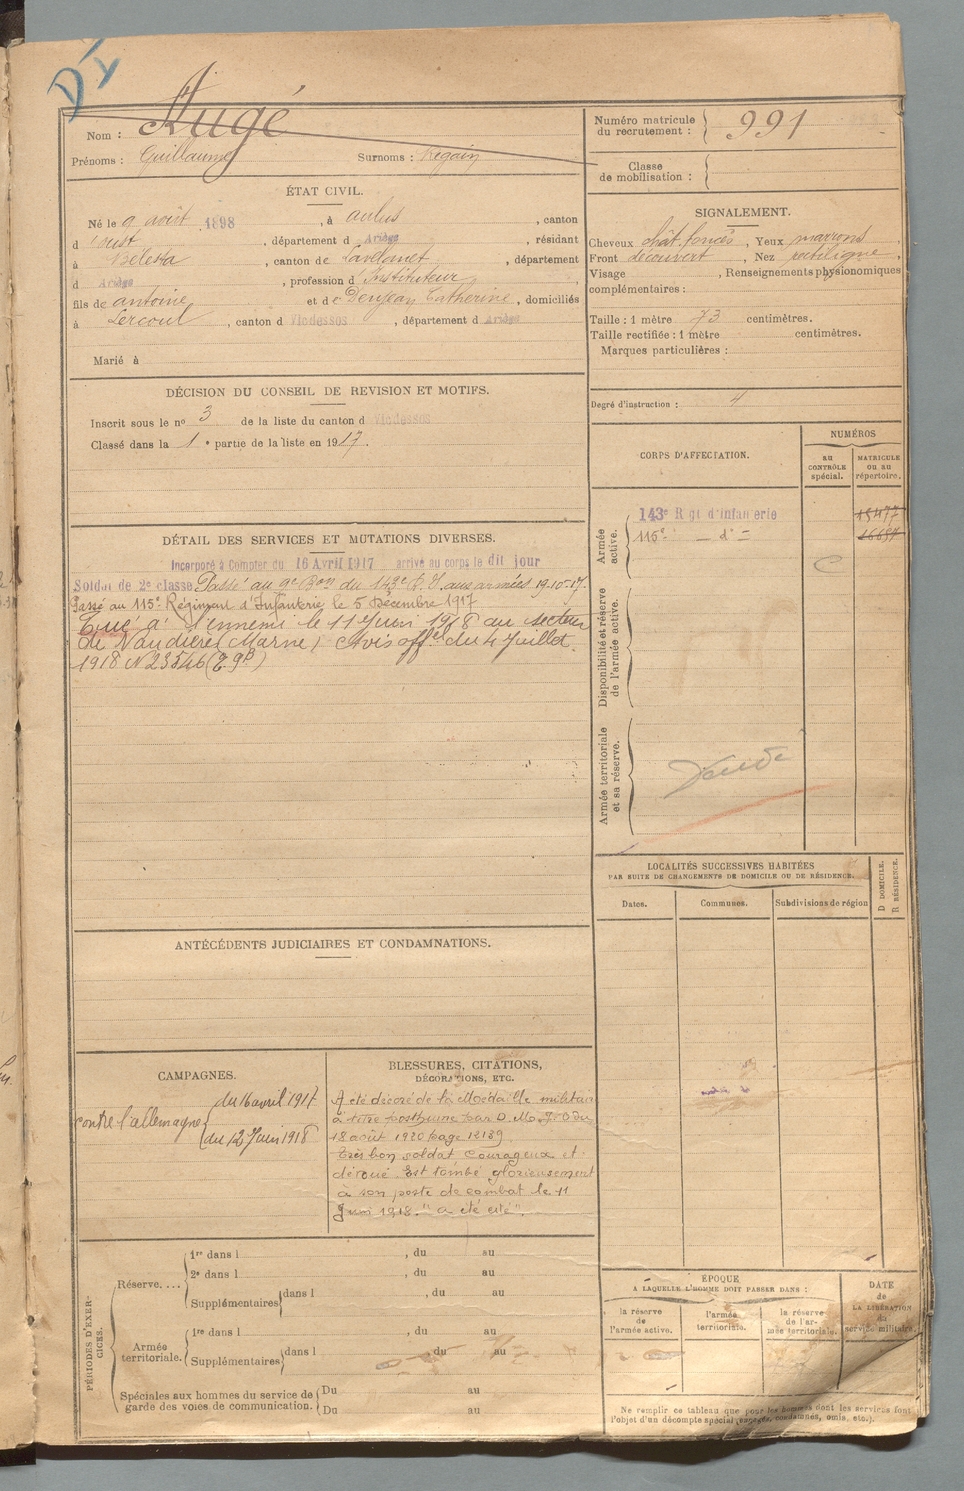 Dx
Nom : Augé
Prénoms : Guillaume Surnoms :
Numéro matricule du recrutement : 991
Classe de mobilisation :
ÉTAT CIVIL.
Né le 9 août 1898, à aulus, canton
d'oust, département d Ariège, résidant
à, canton de Lavelanet, département
d Ariège, profession d'Instituteur,
fils de antoine et de Dejean Catherine, domiciliés
à Lercoul, canton d Vicdessos, département d Ariège
Marié à
SIGNALEMENT.
Cheveux chât. foncés, Yeux marrons,
Front découvert, Nez rectiligne,
Visage, Renseignements physionomiques
complémentaires :
Taille : 1 mètre 73 centimètres.
Taille rectifiée : 1 mètre centimètres.
Marques particulières :
Degré d'instruction : 4
DÉCISION DU CONSEIL DE REVISION ET MOTIFS.
Inscrit sous le n° 3 de la liste du canton d Vicdessos
Classé dans la 1e partie de la liste en 1917.
CORPS D'AFFECTATION.
NUMÉROS
AU CONTRÔLE spécial.
MATRICULE OU AU répertoire.
Armée active.
143e Rgt d'Infanterie 15477
115e — d° — 16697
C
Disponibilité et réserve de l'armée active.
Armée territoriale et sa réserve.
DÉTAIL DES SERVICES ET MUTATIONS DIVERSES.
Incorporé à Compter du 16 Avril 1917 arrivé au corps le dit jour
Soldat de 2e classe Passé au 9e Bon du 143e R.I. aux armées 19-10-17.
Passé au 115e Régiment d'Infanterie le 5 Décembre 1917
Tué à l'ennemi le 11 Juin 1918 au secteur
de Vaudières (Marne) Avis offel du 4 Juillet
1918 N°
ANTÉCÉDENTS JUDICIAIRES ET CONDAMNATIONS.
LOCALITÉS SUCCESSIVES HABITÉES
PAR SUITE DE CHANGEMENTS DE DOMICILE OU DE RÉSIDENCE.
Dates.
Communes.
Subdivisions de région
D DOMICILE.
R RÉSIDENCE.
CAMPAGNES.
contre l'allemagne
du 16 avril 1917
au 12 Juin 1918
BLESSURES, CITATIONS,
DÉCORATIONS, ETC.
A été décoré de la Médaille militaire
à titre posthume par D. M. J.O du
18 août 1920 page 12139
Très bon soldat courageux et
dévoué. Est tombé glorieusement
à son poste de combat le 11
Juin 1918. "a été cité".
PÉRIODES D'EXERCICES.
Réserve....
1re dans l, du au
2e dans l, du au
Supplémentaires dans l, du au
Armée territoriale.
1re dans l, du au
Supplémentaires dans l du au
Spéciales aux hommes du service de
garde des voies de communication.
Du au
Du au
ÉPOQUE
A LAQUELLE L'HOMME DOIT PASSER DANS :
la réserve de l'armée active.
l'armée territoriale.
la réserve de l'armée territoriale.
DATE de LA LIBÉRATION du service militaire.
Ne remplir ce tableau que pour les hommes dont les services font
l'objet d'un décompte spécial (engagés, condamnés, omis, etc.).